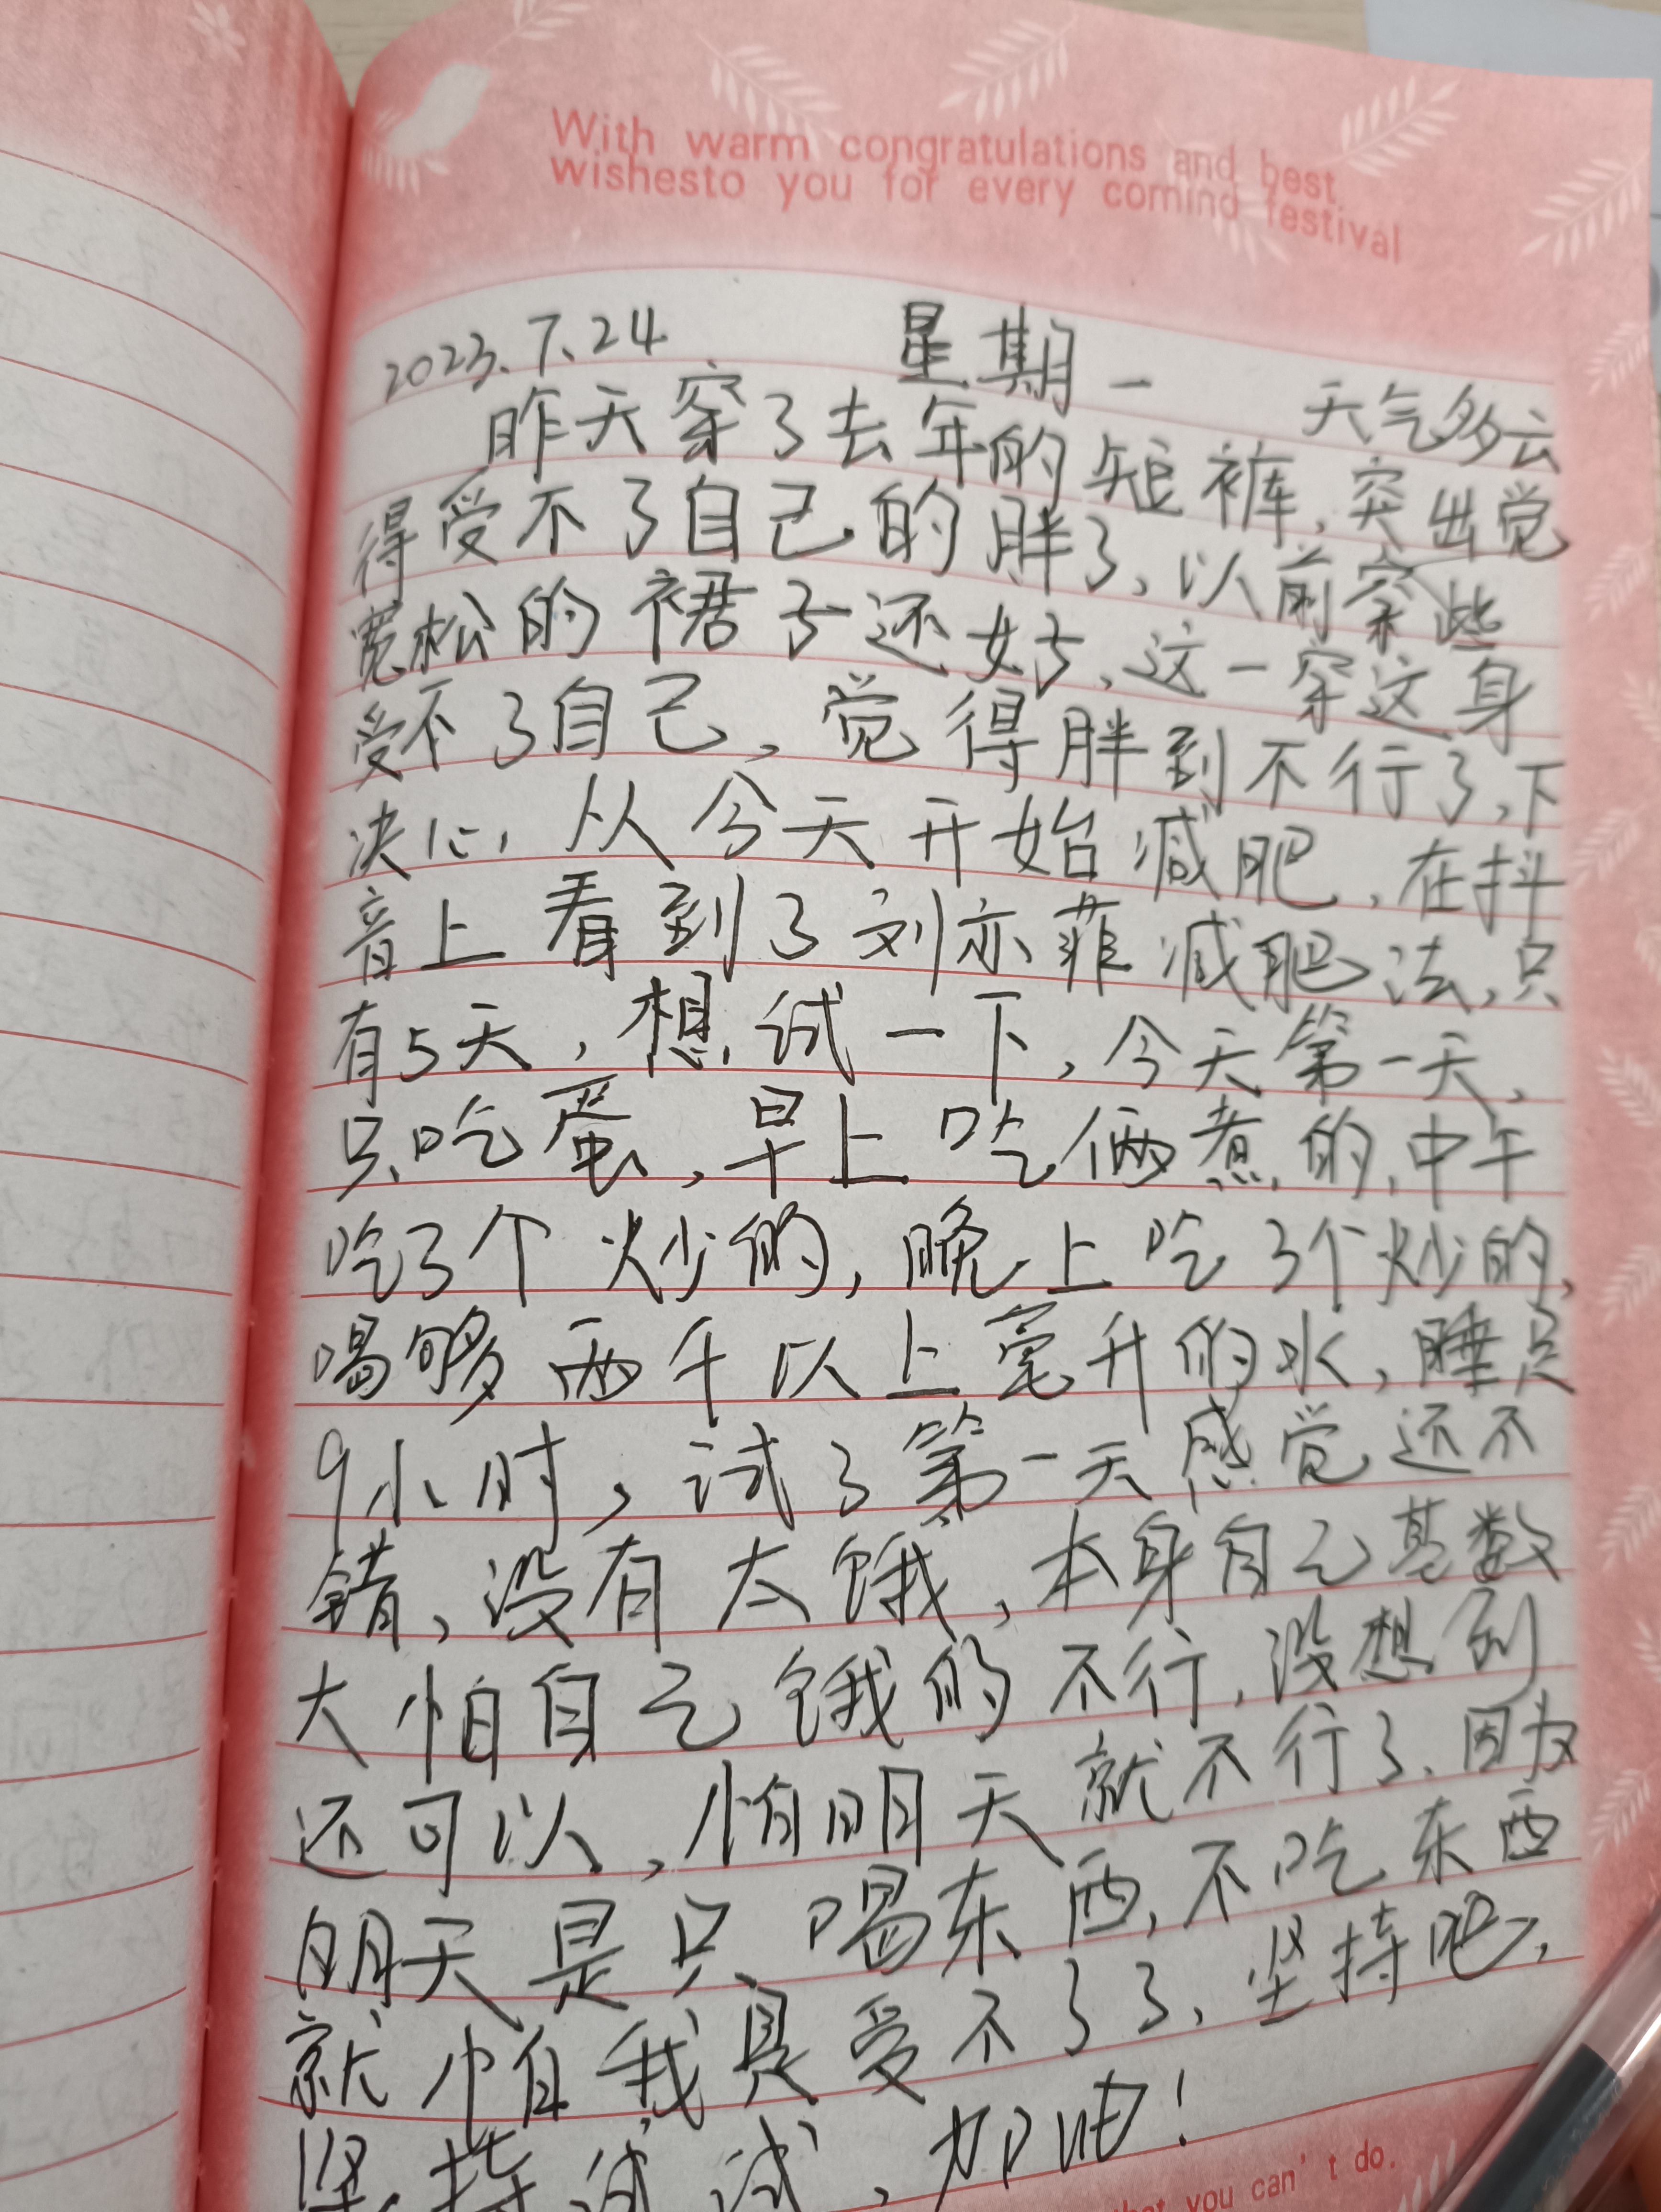 With warm congratulations and best
wishesto you for every comind festival
2023.7.24 星期一 天气多云
昨天穿了去年的短裤,突出觉
得受不了自己的胖了,以前穿些
宽松的裙子还好,这一穿这身
受不了自己,觉得胖到不行了,下
决心,从今天开始减肥,在抖
音上看到了刘亦菲减肥法,只
有5天,想试一下,今天第一天,
只吃蛋,早上吃俩煮的,中午
吃了3个炒的,晚上吃3个炒的,
喝够两千以上毫升的水,睡足
9小时,试了第一天感觉还不
错,没有太饿,本身自己基数
大怕自己饿的不行,没想到
还可以,怕明天就不行了,因为
明天是只喝东西,不吃东西
就怕我是受不了了,坚持吧,
坚持试试,加油!
you can't do.